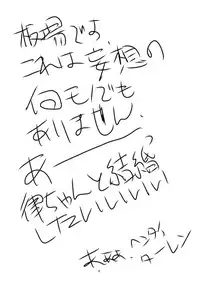 板場でよ、
これは、妄想の
何モノでも
ありません。
あ――――
律ちゃんと結婚
したいいいいい
ヘンダ
ーレン